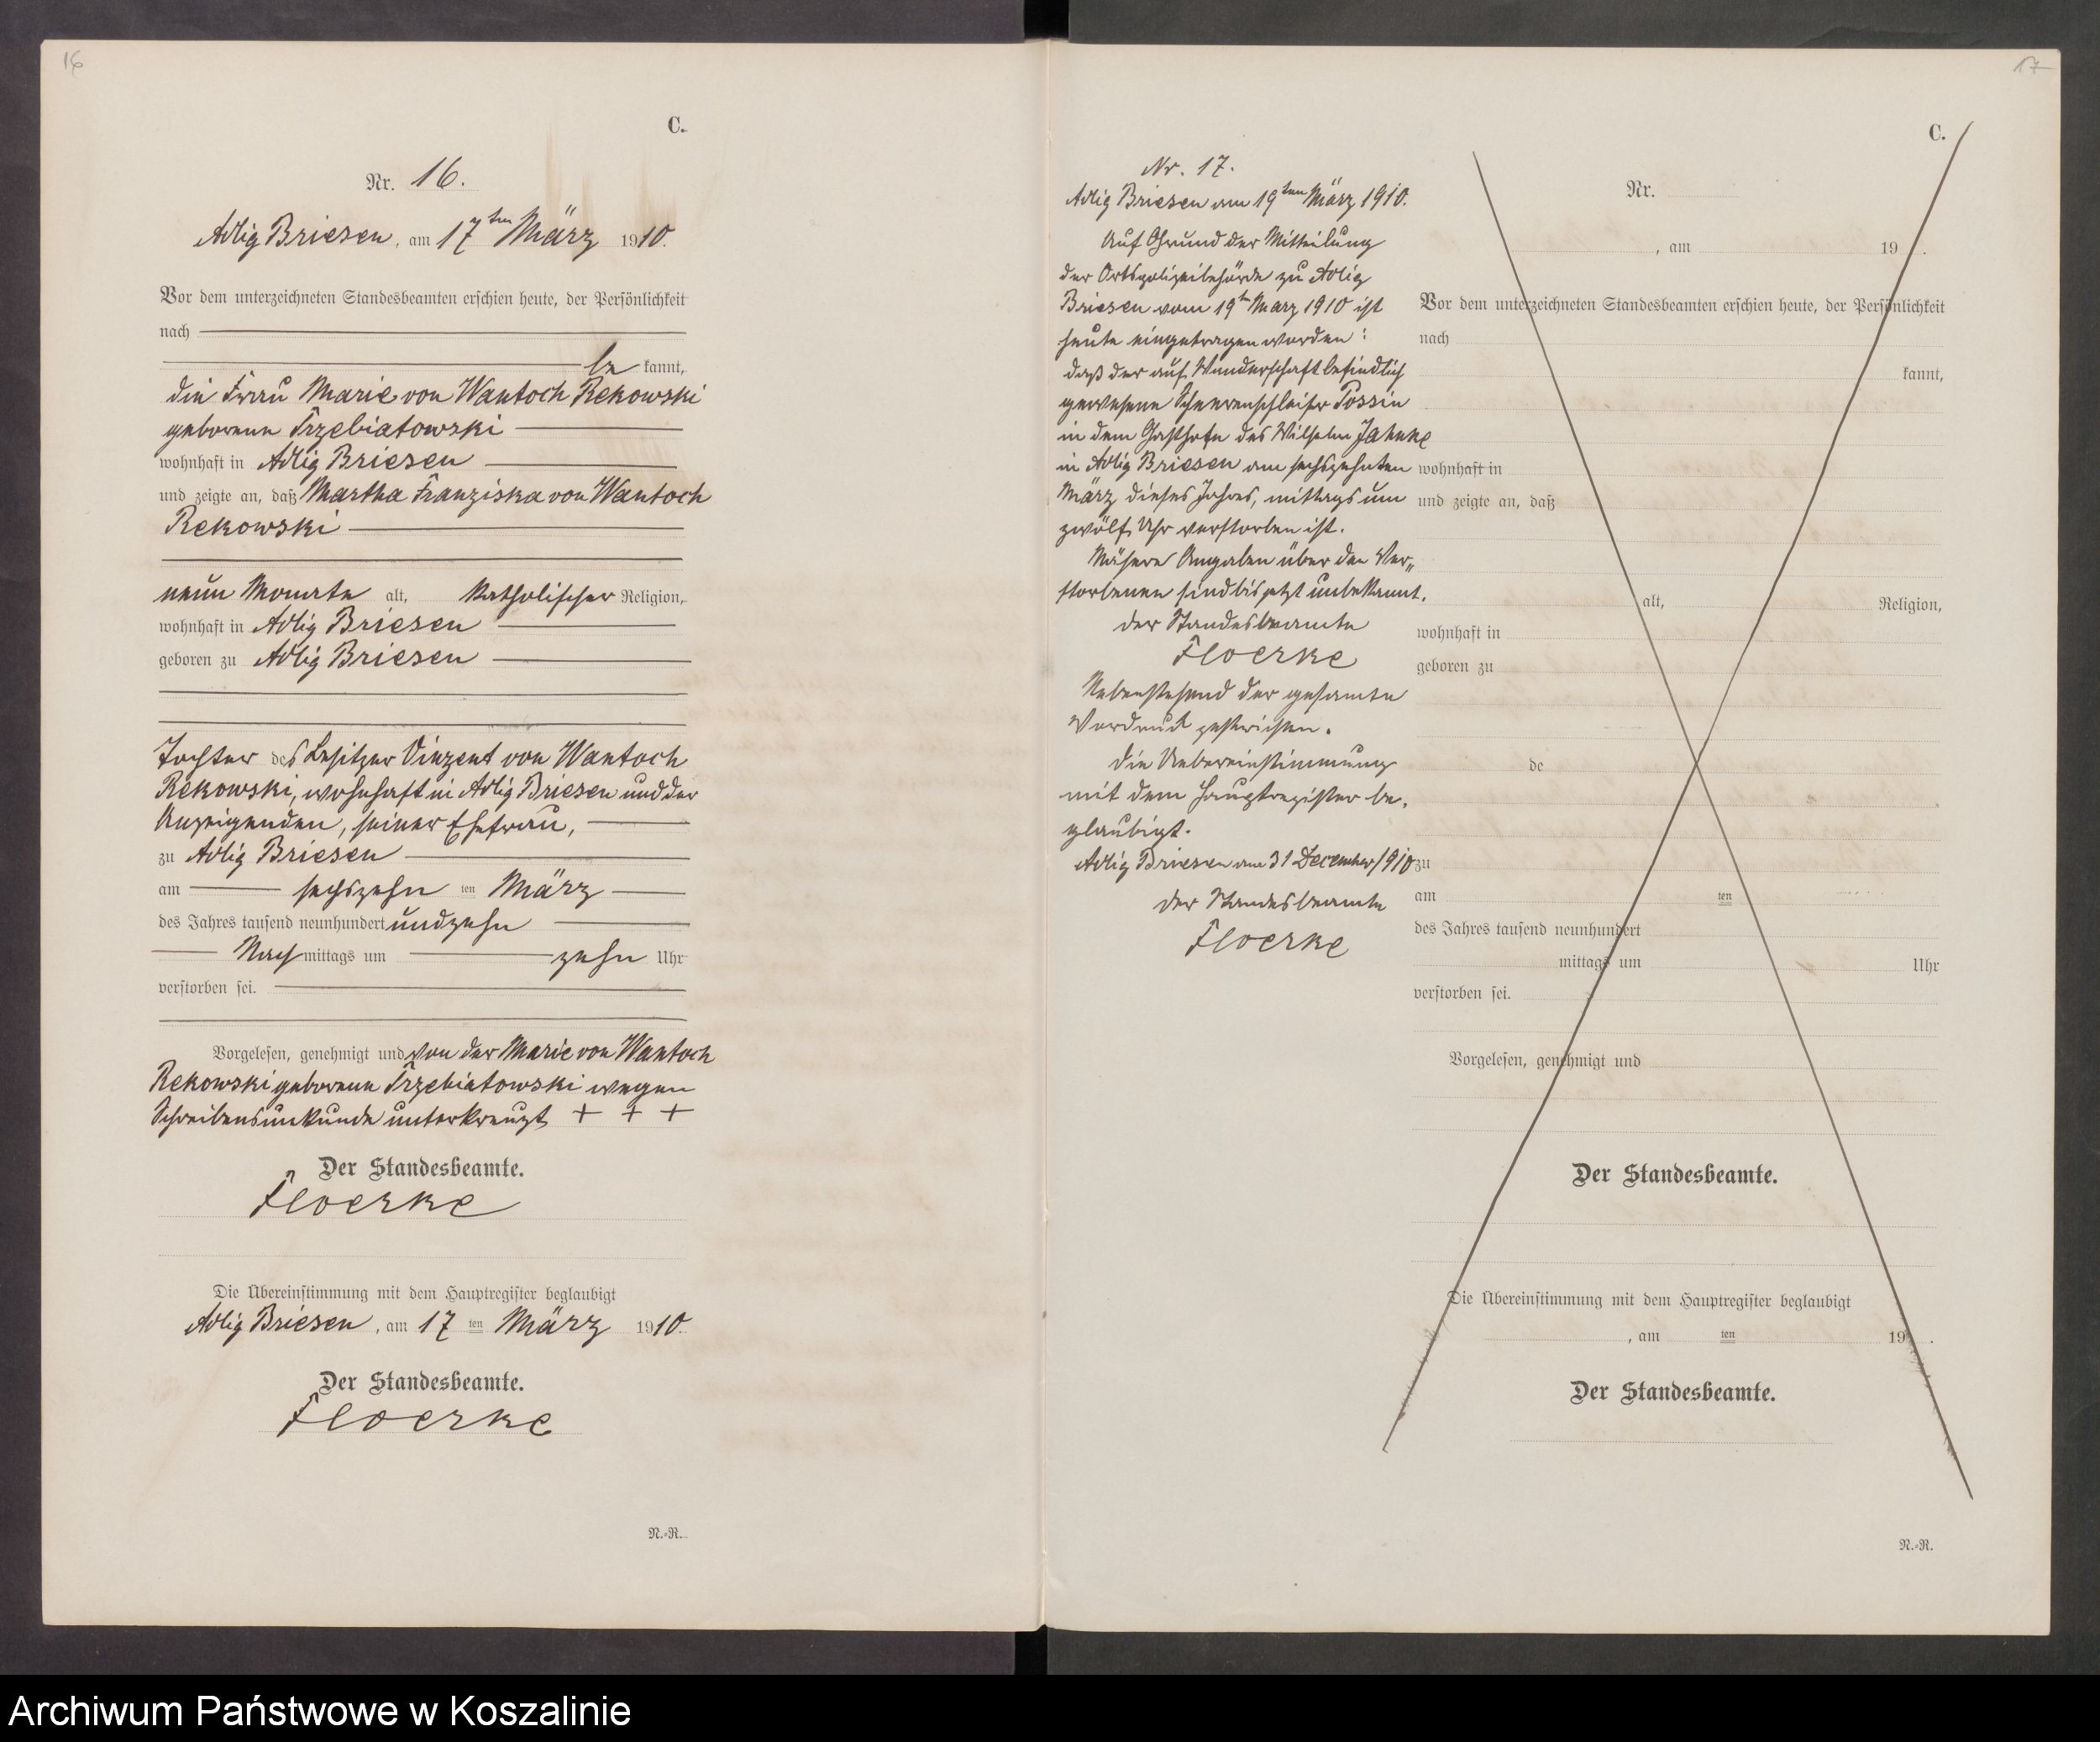 16
C.
Nr. 16.
Adlig Briesen, am 17ten März 1910.
Vor dem unterzeichneten Standesbeamten erschien heute, der Persönlichkeit
nach
be kannt,
die Frau Marie von Wantoch Rekowski
geborene Trzebiatowski
wohnhaft in Adlig Briesen
und zeigte an, daß Martha Franziska von Wantoch
Rekowski
neun Monate alt, katholischer Religion,
wohnhaft in Adlig Briesen
geboren zu Adlig Briesen
Tochter des Besitzer Vinzent von Wantoch
Rekowski, wohnhaft in Adlig Briesen und der
Anzeigenden, seiner Ehefrau,
zu Adlig Briesen
am sechszehn ten März
des Jahres tausend neunhundert undzehn
Nach mittags um zehn Uhr
verstorben sei.
Vorgelesen, genehmigt und von der Marie von Wantoch
Rekowski geborene Trzebiatowski wegen
Schreibensunkunde unterkreuzt + + +
Der Standesbeamte.
Floerke
Die Übereinstimmung mit dem Hauptregister beglaubigt
Adlig Briesen, am 17 ten März 1910.
Der Standesbeamte.
Floerke
N.-R.
17
C.
Nr. 17.
Adlig Briesen am 19ten März 1910.
Auf Grund der Mitteilung
der Ortspolizeibehörde zu Adlig
Briesen vom 19ten März 1910 ist
heute eingetragen worden:
daß der auf Wanderschaft befindlich
gewesene Scheerenschleifer Possin
in dem Gasthofe des Wilhelm Jahnke
in Adlig Briesen am sechszehnten
März dieses Jahres, mittags um
zwölf Uhr verstorben ist.
Nähere Angaben über den Ver„
storbenen sind bis jetzt unbekannt.
Der Standesbeamte
Floerke
Nebenstehend der gesamte
Vordruck gestrichen.
Die Uebereinstimmung
mit dem Hauptregister be„
glaubigt.
Adlig Briesen am 31 December 1910
Der Standesbeamte
Floerke
Nr.
, am 19 .
Vor dem unterzeichneten Standesbeamten erschien heute, der Persönlichkeit
nach
kannt,
wohnhaft in
und zeigte an, daß
alt, Religion,
wohnhaft in
geboren zu
de
zu
am ten
des Jahres tausend neunhundert
mittags um Uhr
verstorben sei.
Vorgelesen, genehmigt und
Der Standesbeamte.
Die Übereinstimmung mit dem Hauptregister beglaubigt
, am ten 19 .
Der Standesbeamte.
N.-R.
Archiwum Państwowe w Koszalinie